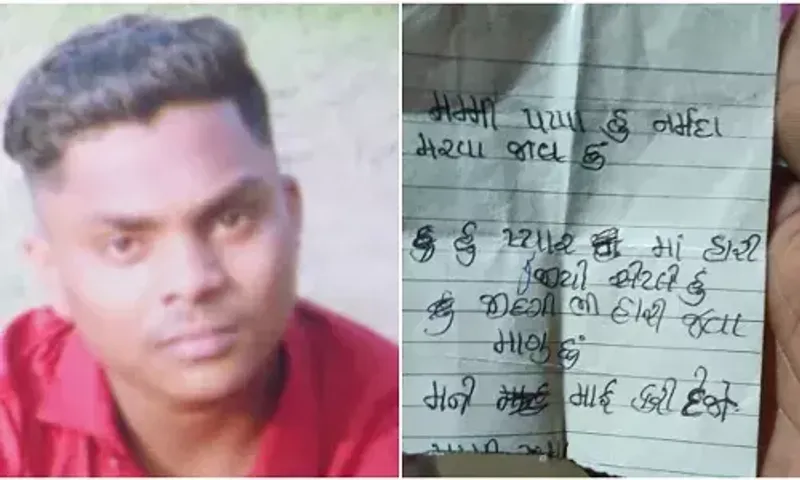 મમ્મી પપ્પા હું નર્મદા
મરવા જાવ છું
હું પ્યાર માં હારી
ગયો એટલે હું
જીંદગી ભી હારી જવા
માગુ છું
મને માફ કરી દેજો